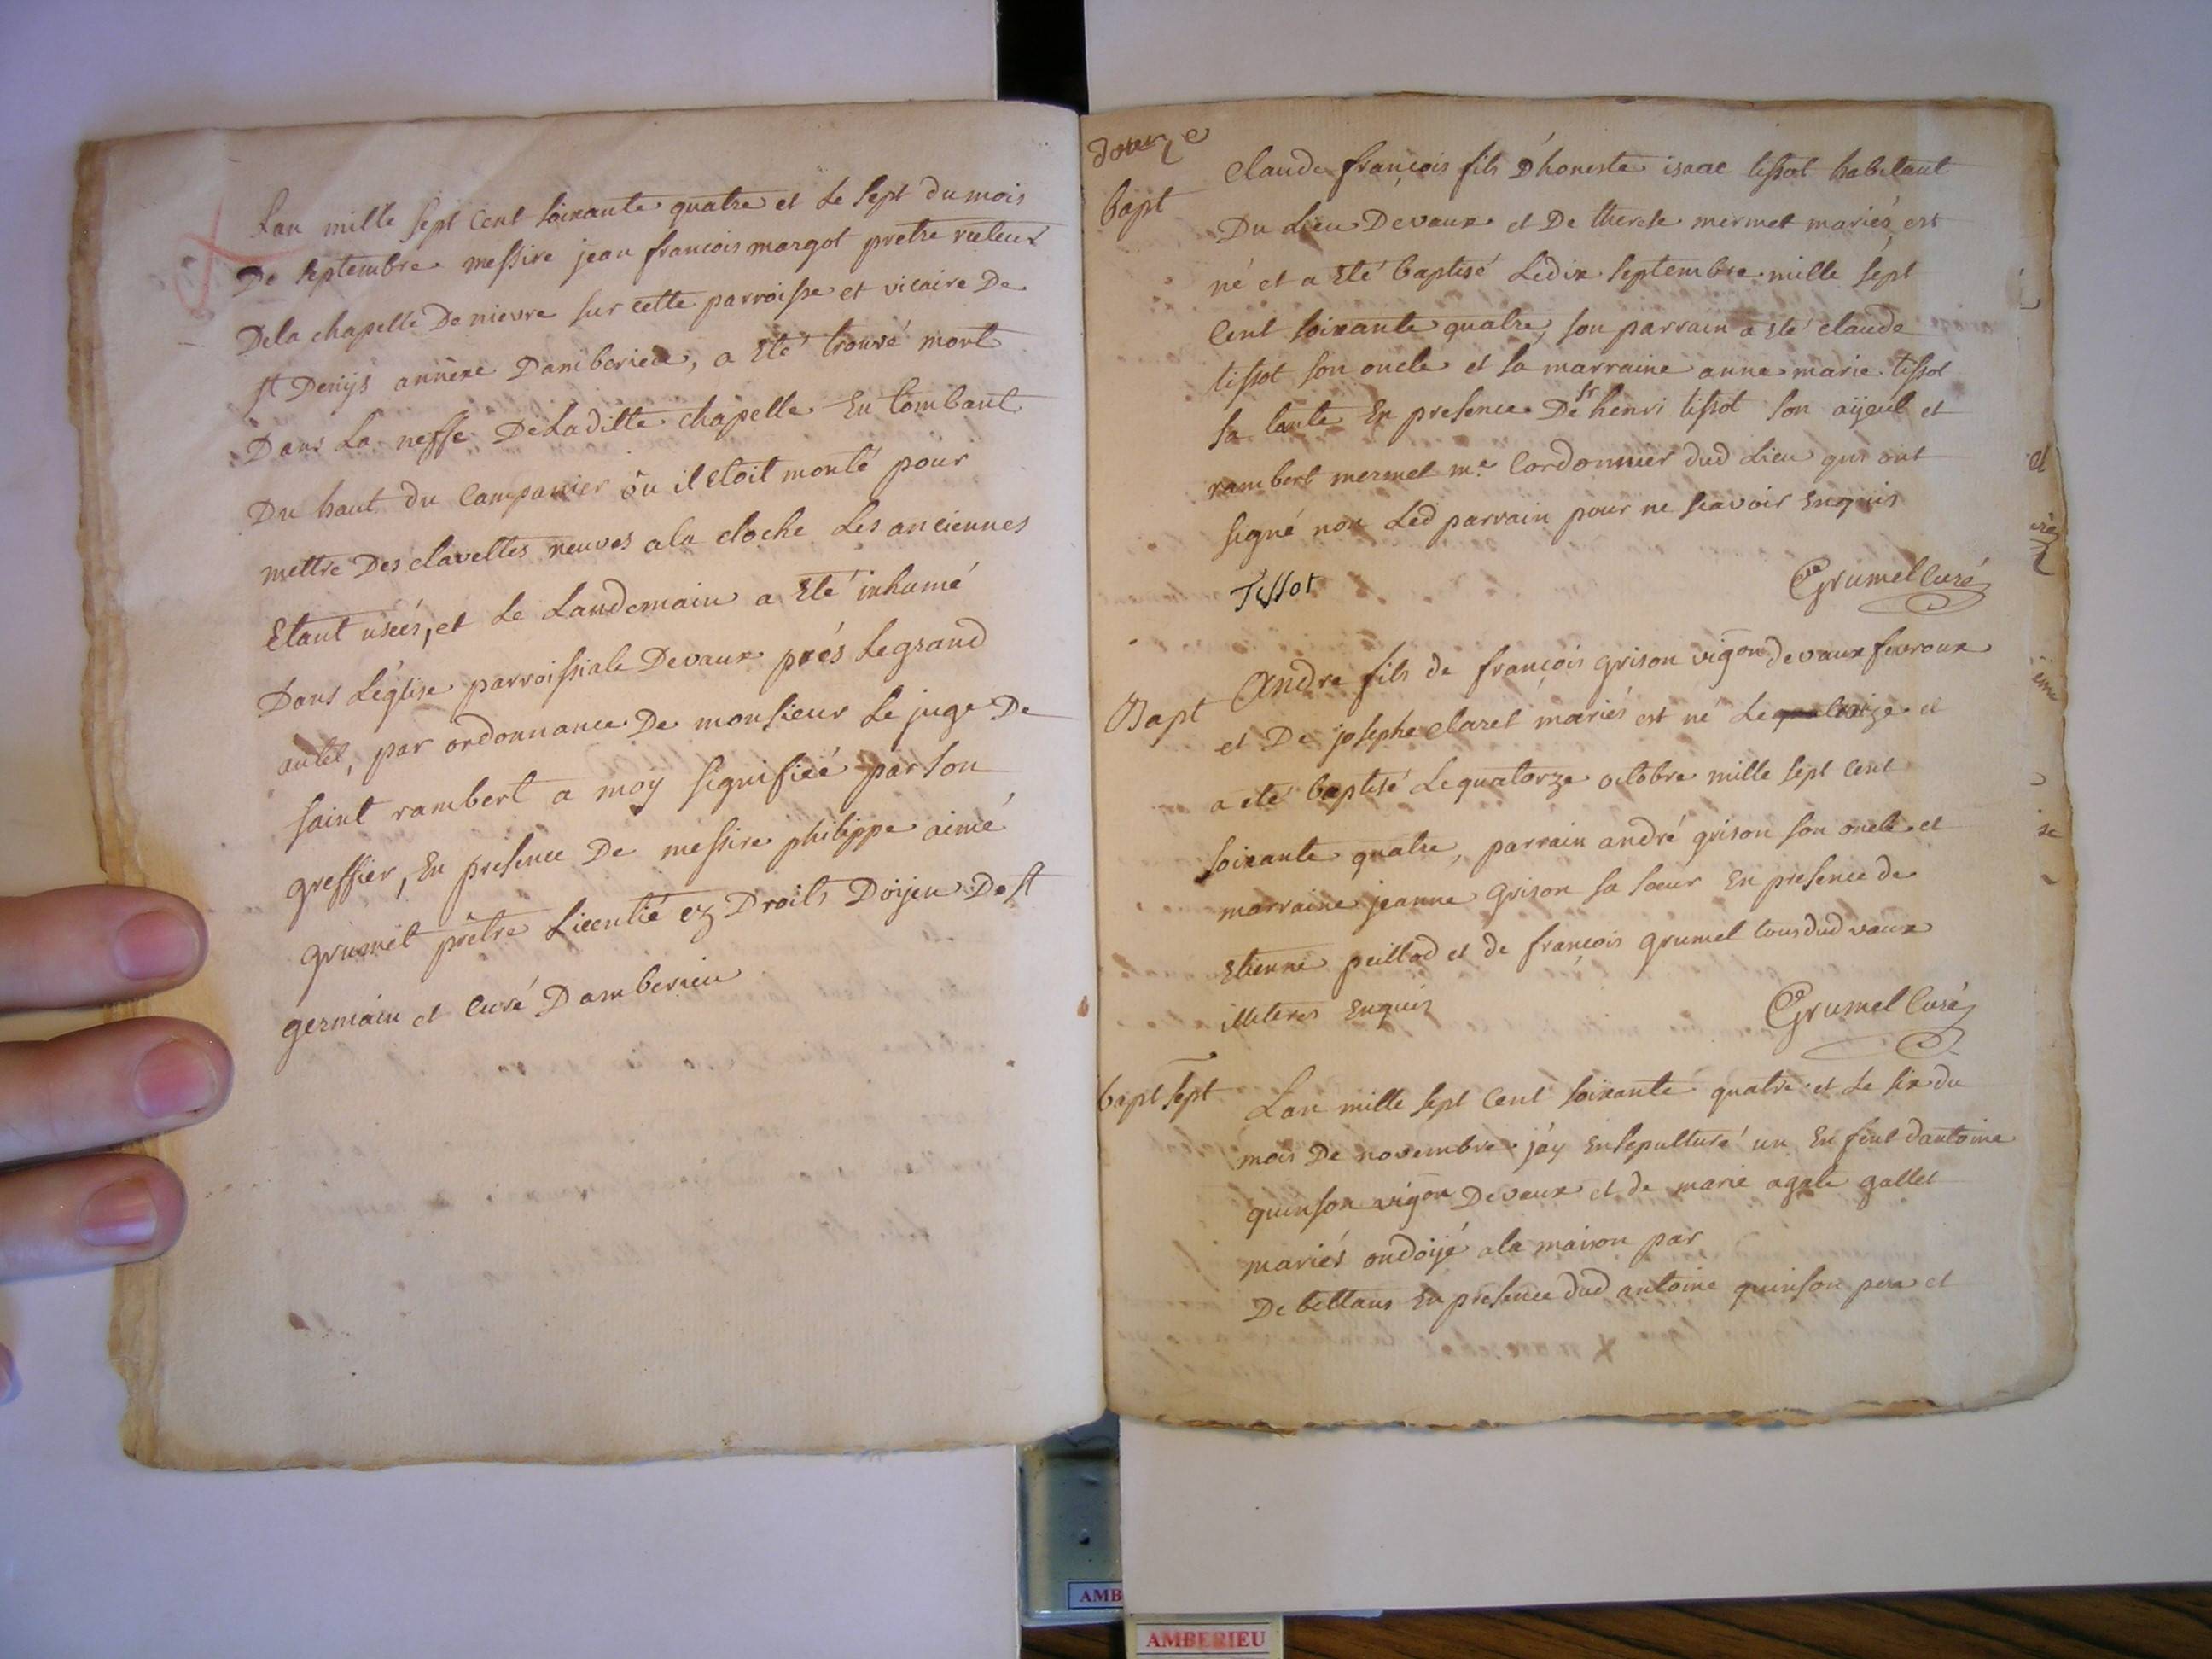 Lan mille sept cent soixante quatre et le sept du mois
De septembre messire jean francois margot pretre recteur
Dela chapelle De nievre sur cette parroisse et vicaire De
st Denijs annexe Damberieu, a eté trouvé mort
Dans La neffe DeLaditte chapelle En tombant
Du haut du campanier ou il etoit monté pour
mettre Des clavettes neuves ala cloche Les anciennes
Etant usées, et Le Landemain a Eté inhumé
Dans L'église parroissiale Devaux prés Legrand
autel, par ordonnance De monsieur Le juge De
saint rambert a moy signifiée par son
greffier, En presence De messire philippe aimé
grumet prêtre Licentié ez Droits Doijen De st
germain et curé Damberieu
douze
bapt
claude françois fils D'honeste isaac tissot habitant
Du Lieu Devaux et De therese mermet mariés, est
né et a Eté baptisé Le dix septembre mille sept
cent soixante quatre, son parrain a eté claude
tissot son oncle et sa marraine anne marie tissot
sa tante En presence De sr henri tissot son aijeul et
rambert mermet me cordonnier dud Lieu qui ont
signé non Led parrain pour ne scavoir Enquis
Tissot
Grumet curé
Bapt
andre fils de françois grison vigon devaux fevroux
et De josephe claret mariés est né Le et
a eté baptisé Le quatorze octobre mille sept cent
soixante quatre, parrain andré grison son oncle et
marraine jeanne grison sa soeur En presence de
Etienne peillod et de françois grumet tous dud vaux
illiteres Enquis
Grumet curé
bapt sept
Lan mille sept cent soixante quatre et Le six du
mois De novembre j'ay Ensepulturé un Enfent dantoine
quinson vigon Devaux et de marie agate gallet
mariés ondoijé ala maison par
De bettans En presence dud antoine quinson pere et
AMB
AMBERIEU